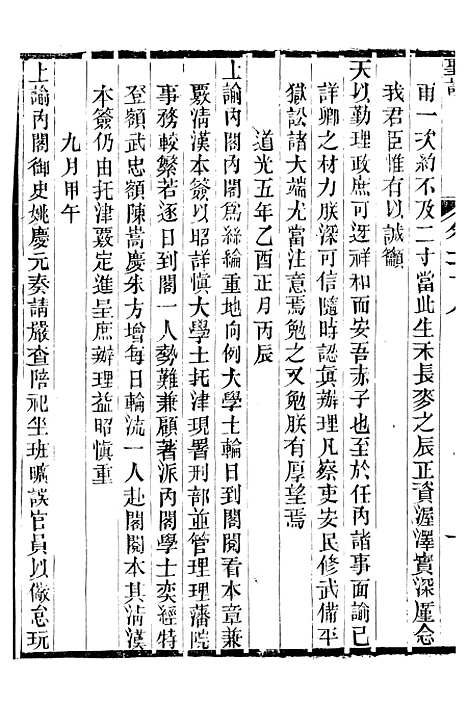 雨一次約不及二寸當此生禾長麥之辰正資渥澤實深廑念
我君臣惟有以誠籲
天以勤理政庶可迓祥和而安吾赤子也至於任內諸事面諭已
詳卿之材力朕深可信隨時認眞辦理凡察吏安民修武備平
獄訟諸大端尤當注意焉勉之又勉朕有厚望焉
道光五年乙酉正月丙辰
上諭內閣內閣爲絲綸重地向例大學士輪日到閣閱看本章兼
覈清漢本簽以昭詳愼大學士托津現署刑部並管理理藩院
事務較繁若逐日到閣一人勢難兼顧著派內閣學士奕經特
登額武忠額陳嵩慶朱方增每日輪流一人赴閣閱本其清漢
本簽仍由托津覈定進呈庶辦理益昭愼重
九月甲午
上諭內閣御史姚慶元奏請嚴查陪祀坐班曠誤官員以儆怠玩